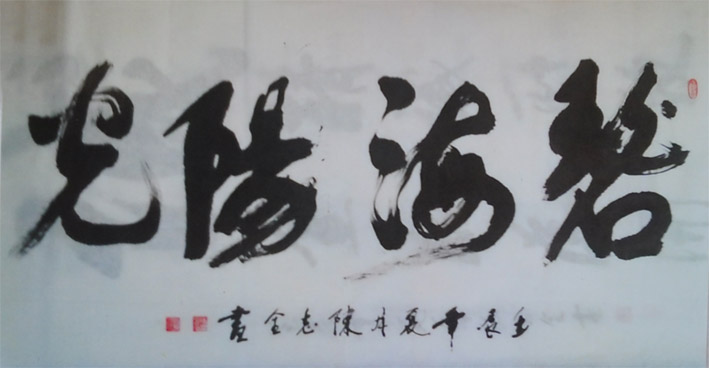 碧海陽光
壬辰年夏月陳志全書